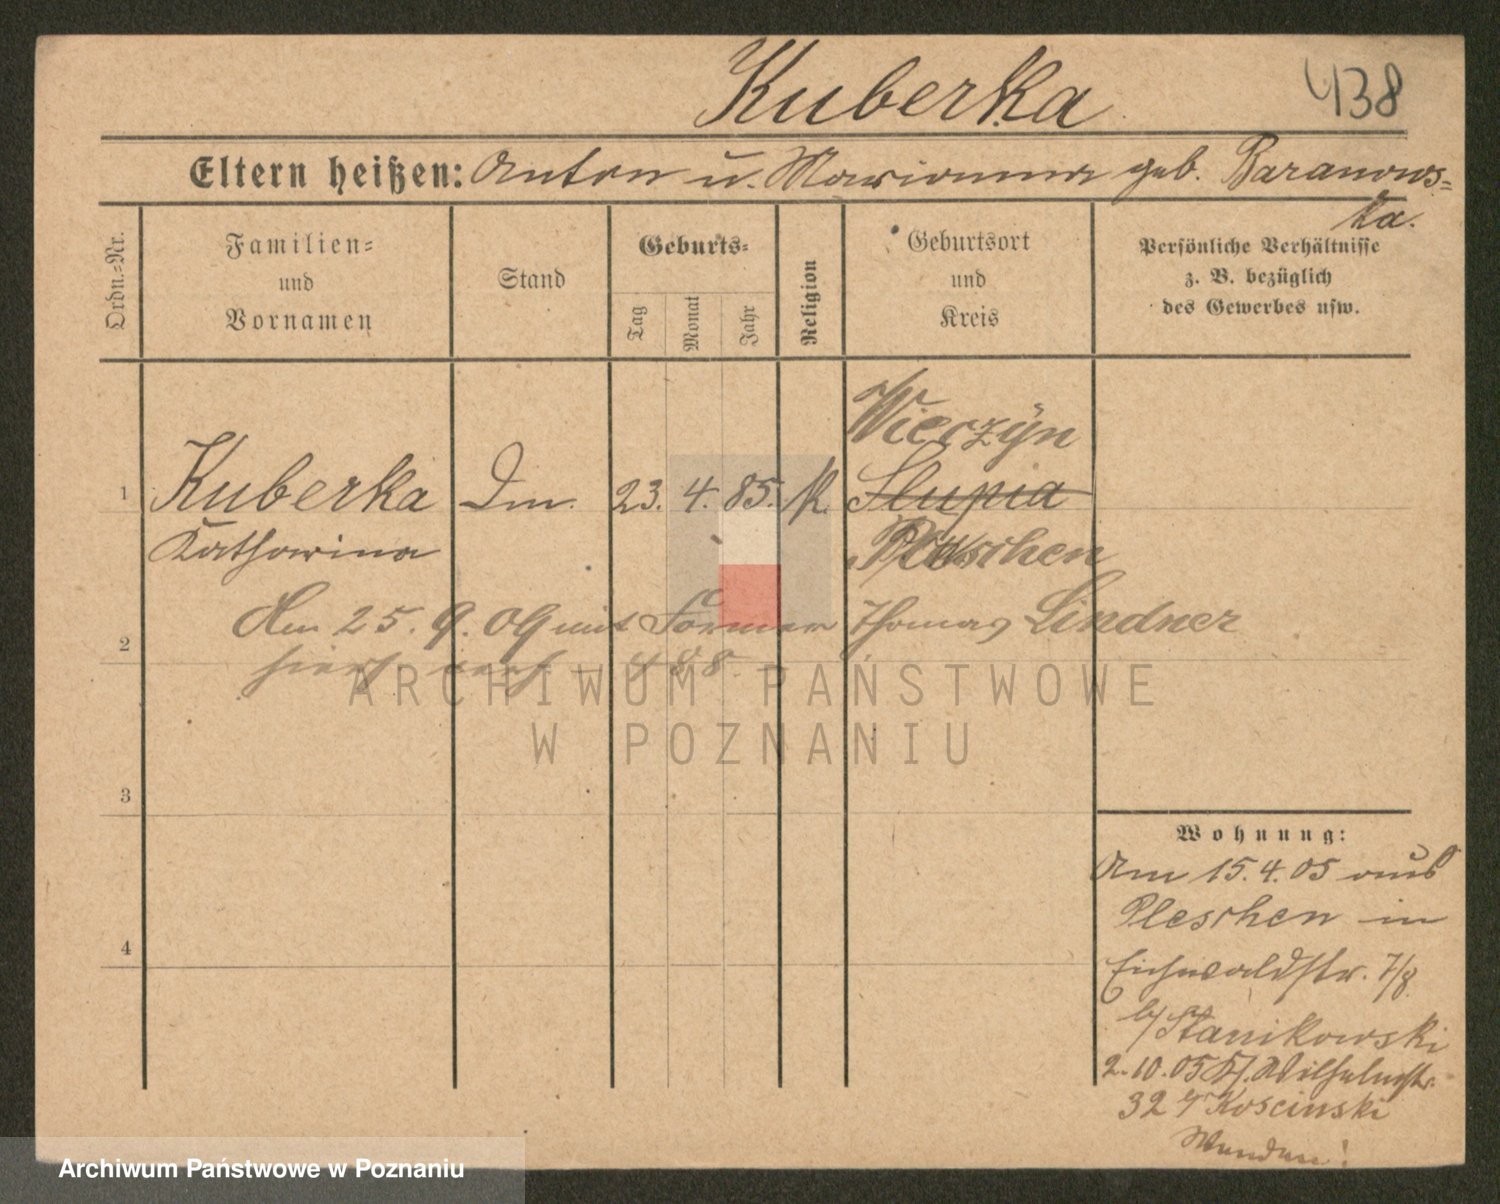 Kuberka
438
Eltern heißen: Anton u. Marianna geb. Baranows-
ka.
Ordn.-Nr.
Familien-
und
Vornamen
Stand
Geburts-
Tag
Monat
Jahr
Religion
Geburtsort
und
Kreis
Persönliche Verhältnisse
z. B. bezüglich
des Gewerbes usw.
Wierzyn
1 Kuberka Dm. 23. 4. 85. K. Slupia
Katharina Pleschen
Am 25. 9. 09 mit Former Thomas Lindner
2
hier verh. 488
ARCHIWUM PAŃSTWOWE
W POZNANIU
3
Wohnung:
Am 15.4.05 aus
Pleschen in
4
Eichwaldstr. 7/8
b/ Stanikowski
2.10.05 Kl. Wilhelmstr.
32 Koscinski
Wenden!
Archiwum Państwowe w Poznaniu